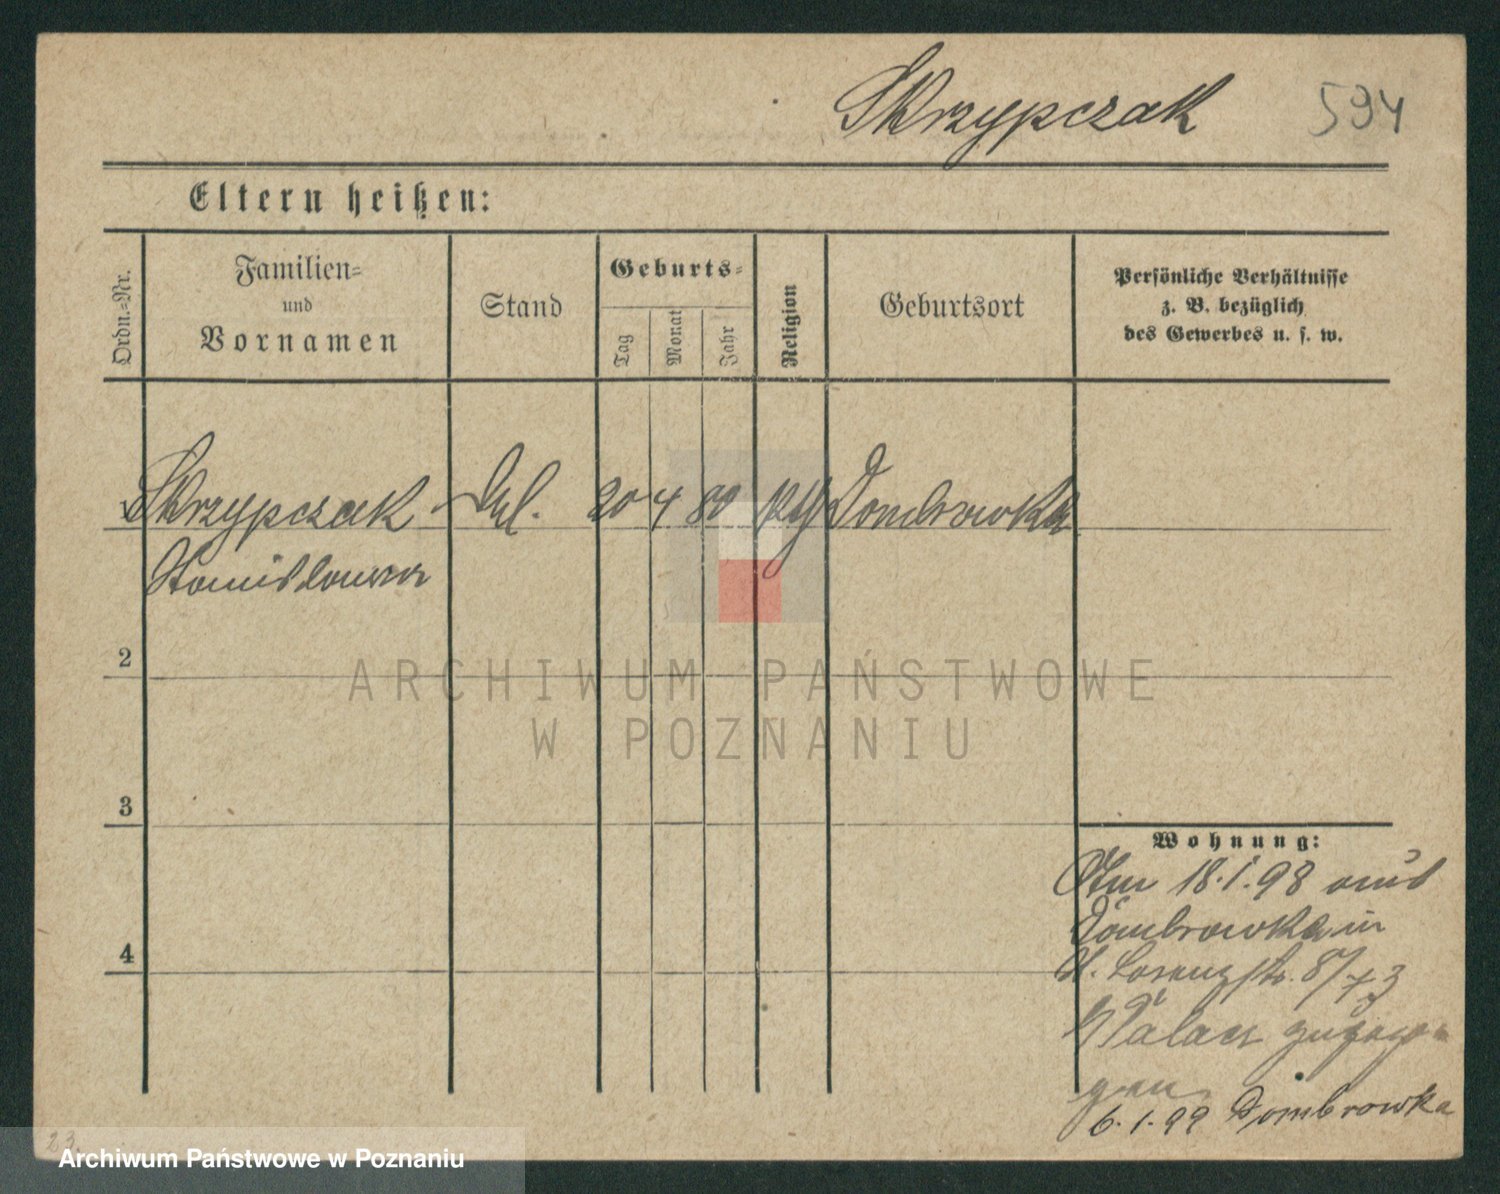 Skrzypczak 594
Eltern heißen:
Ordn.-Nr.
Familien-
und
Vornamen
Stand
Geburts-
Tag
Monat
Jahr
Religion
Geburtsort
Persönliche Verhältnisse
z. B. bezüglich
des Gewerbes u. s. w.
1 Skrzypczak 20 4 80 Dombrowka
Stanislawa
2
3
4
Wohnung:
Am 18.1.98 aus
Dombrowka in
St. Lorenzstr.
zugezo-
gen
6.1.99 Dombrowka
ARCHIWUM PAŃSTWOWE
W POZNANIU
23
Archiwum Państwowe w Poznaniu